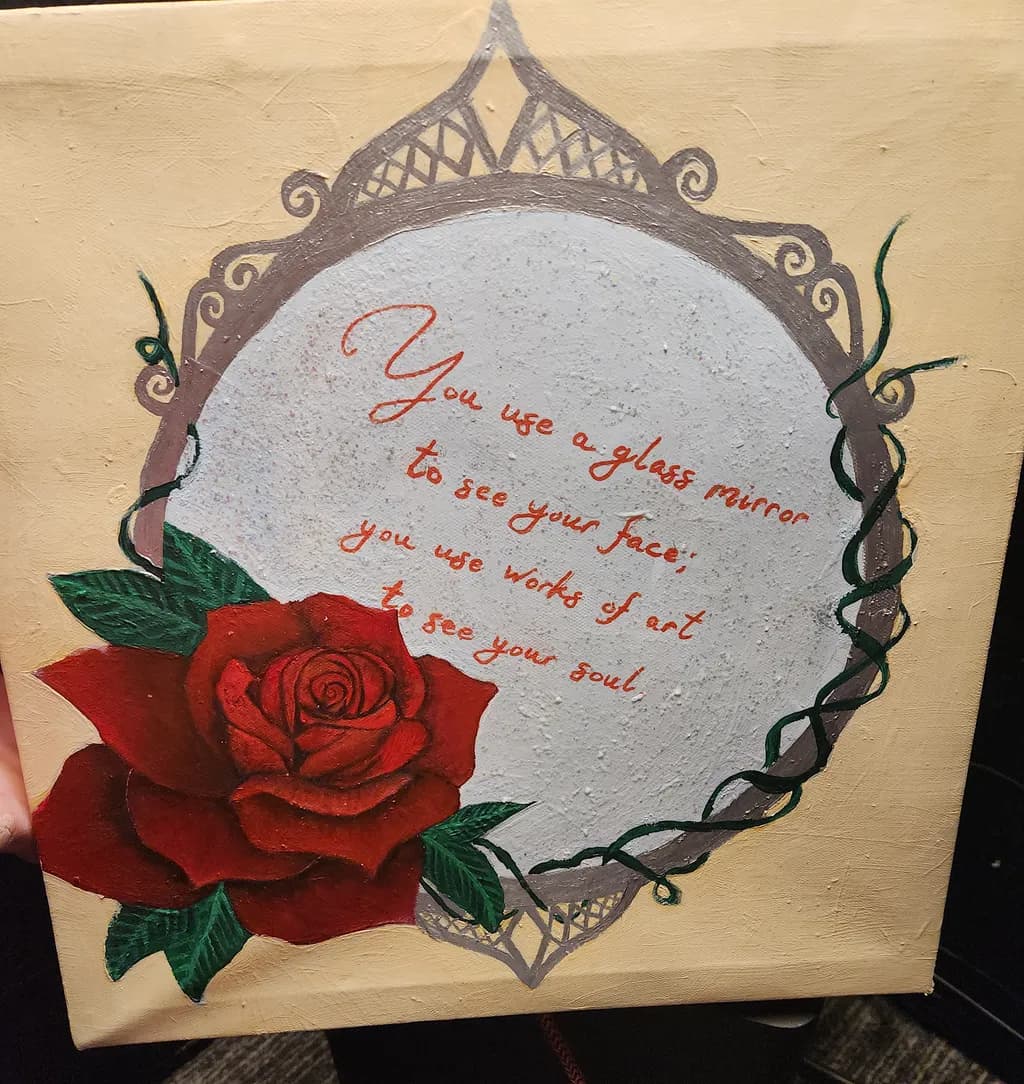 You use a glass mirror
to see your face;
you use works of art
to see your soul